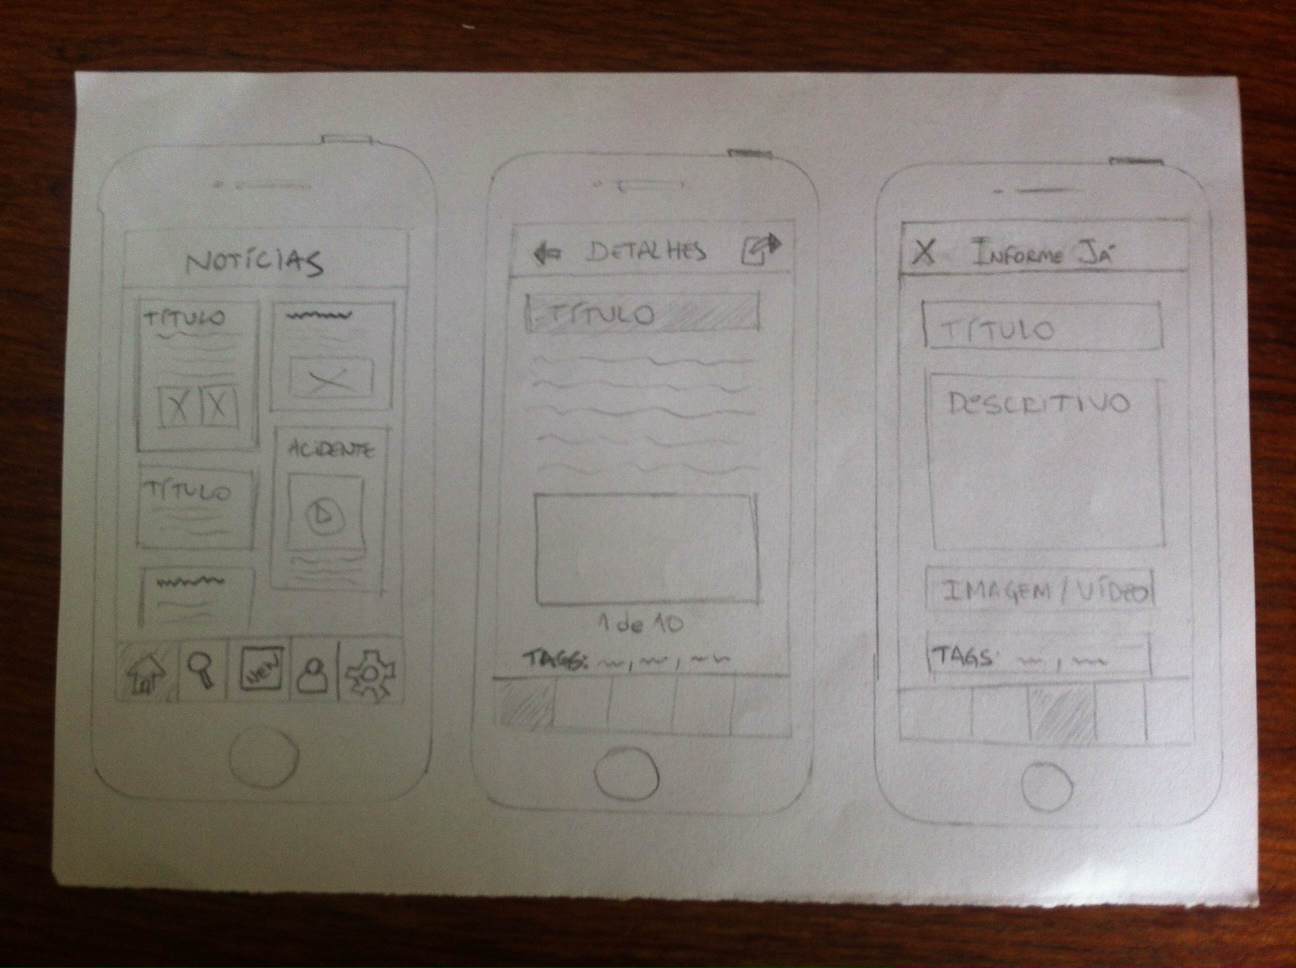 NOTÍCIAS
TÍTULO
ACIDENTE
TÍTULO
NEW
DETALHES
TÍTULO
1 de 10
TAGS:
X INFORME JÁ
TÍTULO
DESCRITIVO
IMAGEM / VÍDEO
TAGS: